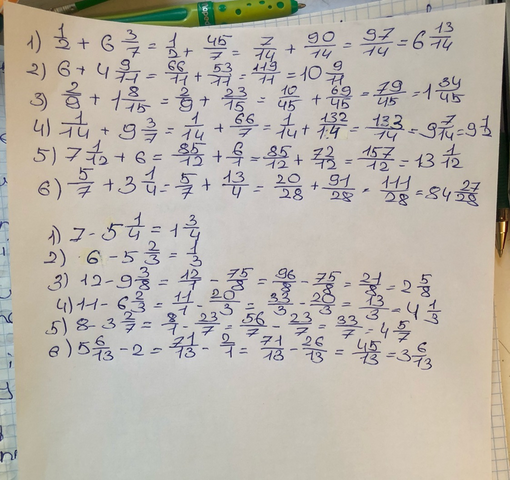 1) 1/2 + 6 3/7 = 1/2 + 45/7 = 7/14 + 90/14 = 97/14 = 6 13/14
2) 6 + 4 9/11 = 66/11 + 53/11 = 119/11 = 10 9/11
3) 2/9 + 1 8/15 = 2/9 + 23/15 = 10/45 + 69/45 = 79/45 = 1 34/45
4) 1/14 + 9 3/7 = 1/14 + 66/7 = 1/14 + 132/14 = 133/14 = 9 7/14 = 9 1/2
5) 7 1/12 + 6 = 85/12 + 6/1 = 85/12 + 72/12 = 157/12 = 13 1/12
6) 5/7 + 3 1/4 = 5/7 + 13/4 = 20/28 + 91/28 = 111/28 = 84 27/28
1) 7 - 5 1/4 = 1 3/4
2) 6 - 5 2/3 = 1/3
3) 12 - 9 3/8 = 12/1 - 75/8 = 96/8 - 75/8 = 21/8 = 2 5/8
4) 11 - 6 2/3 = 11/1 - 20/3 = 33/3 - 20/3 = 13/3 = 4 1/3
5) 8 - 3 2/7 = 8/1 - 23/7 = 56/7 - 23/7 = 33/7 = 4 5/7
6) 5 6/13 - 2 = 71/13 - 2/1 = 71/13 - 26/13 = 45/13 = 3 6/13